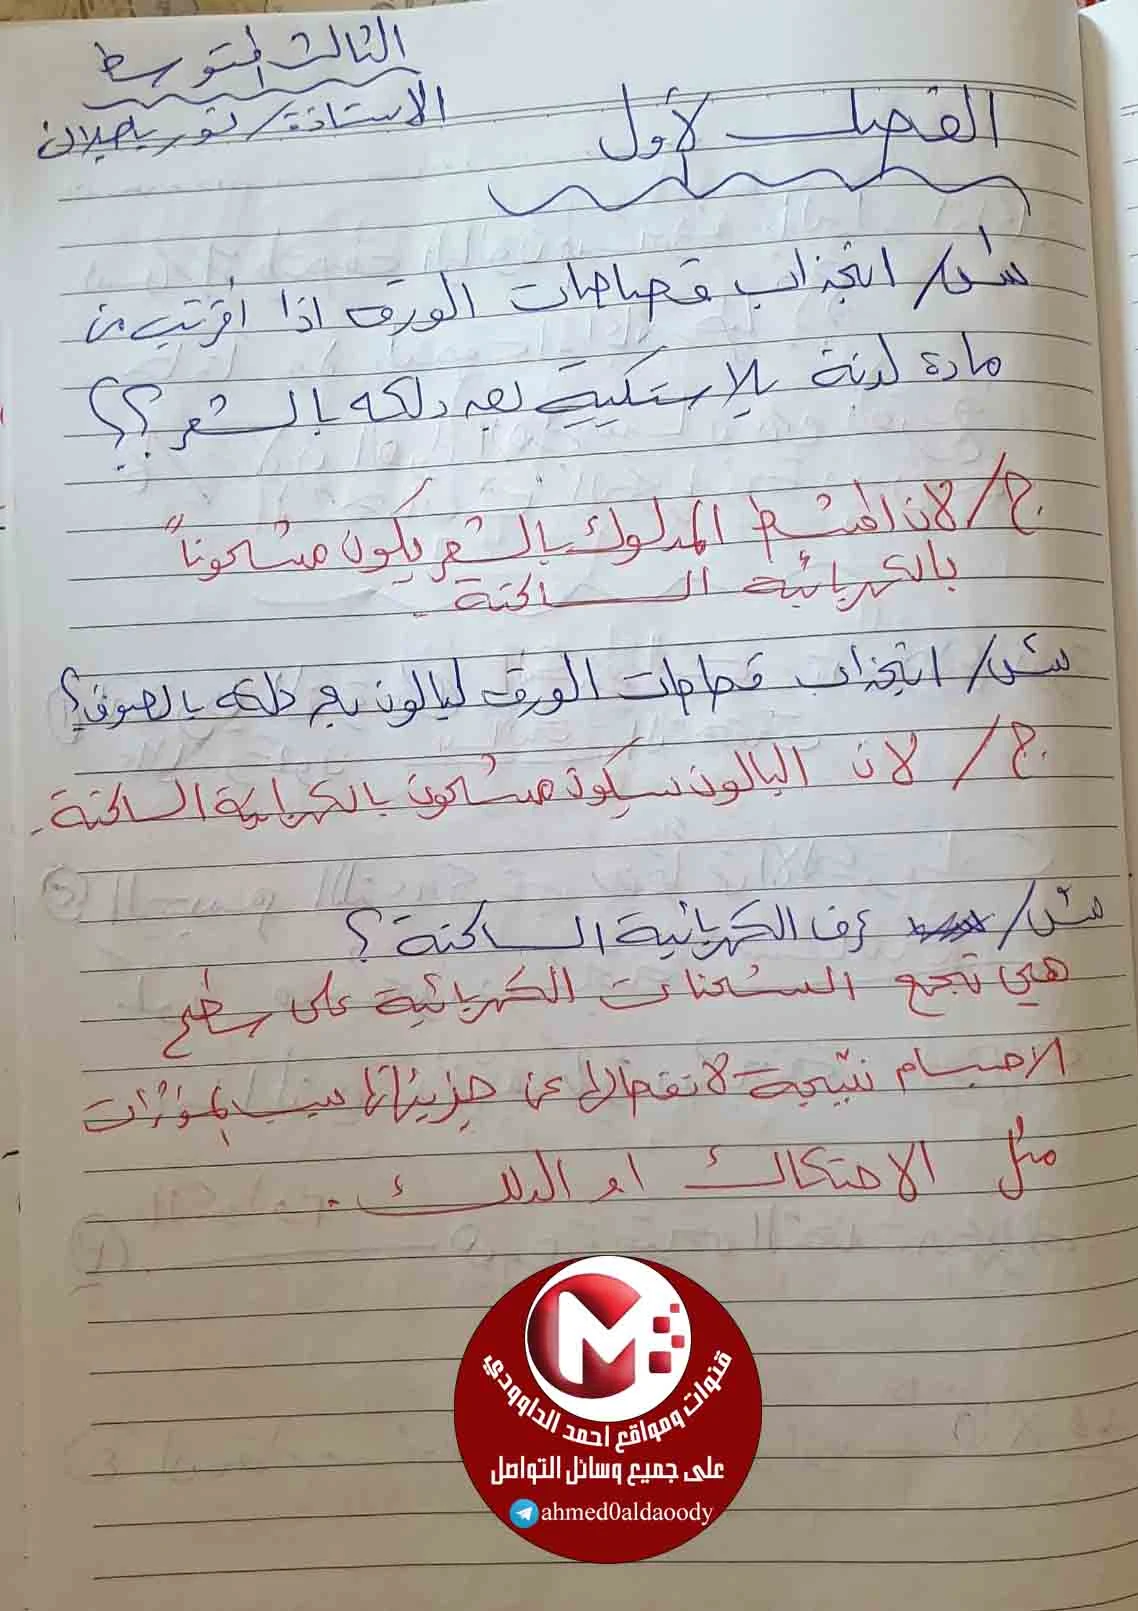 الثالث المتوسط
الاستاذة/ نور
الفصل الأول
س١/ انجذاب قصاصات الورق اذا اقربت من
مادة لدنة بلاستيكية بعد دلكه بالشعر؟؟
ج/ لان المشط المدلوك بالشعر يكون مشحوناً
بالكهربائية الساكنة.
س٢/ انجذاب قصاصات الورق لبالون بعد دلكه بالصوف؟
ج/ لان البالون سيكون مشحون بالكهربائية الساكنة.
س٣/ عرف الكهربائية الساكنة؟
هي تجمع الشحنات الكهربائية على سطح
الاجسام نتيجة لانفصالها عن جزيئاتها بسبب المؤثرات
مثل الاحتكاك او الدلك.
M
قنوات ومواقع احمد الداوودي
على جميع وسائل التواصل
ahmed0aldaoody